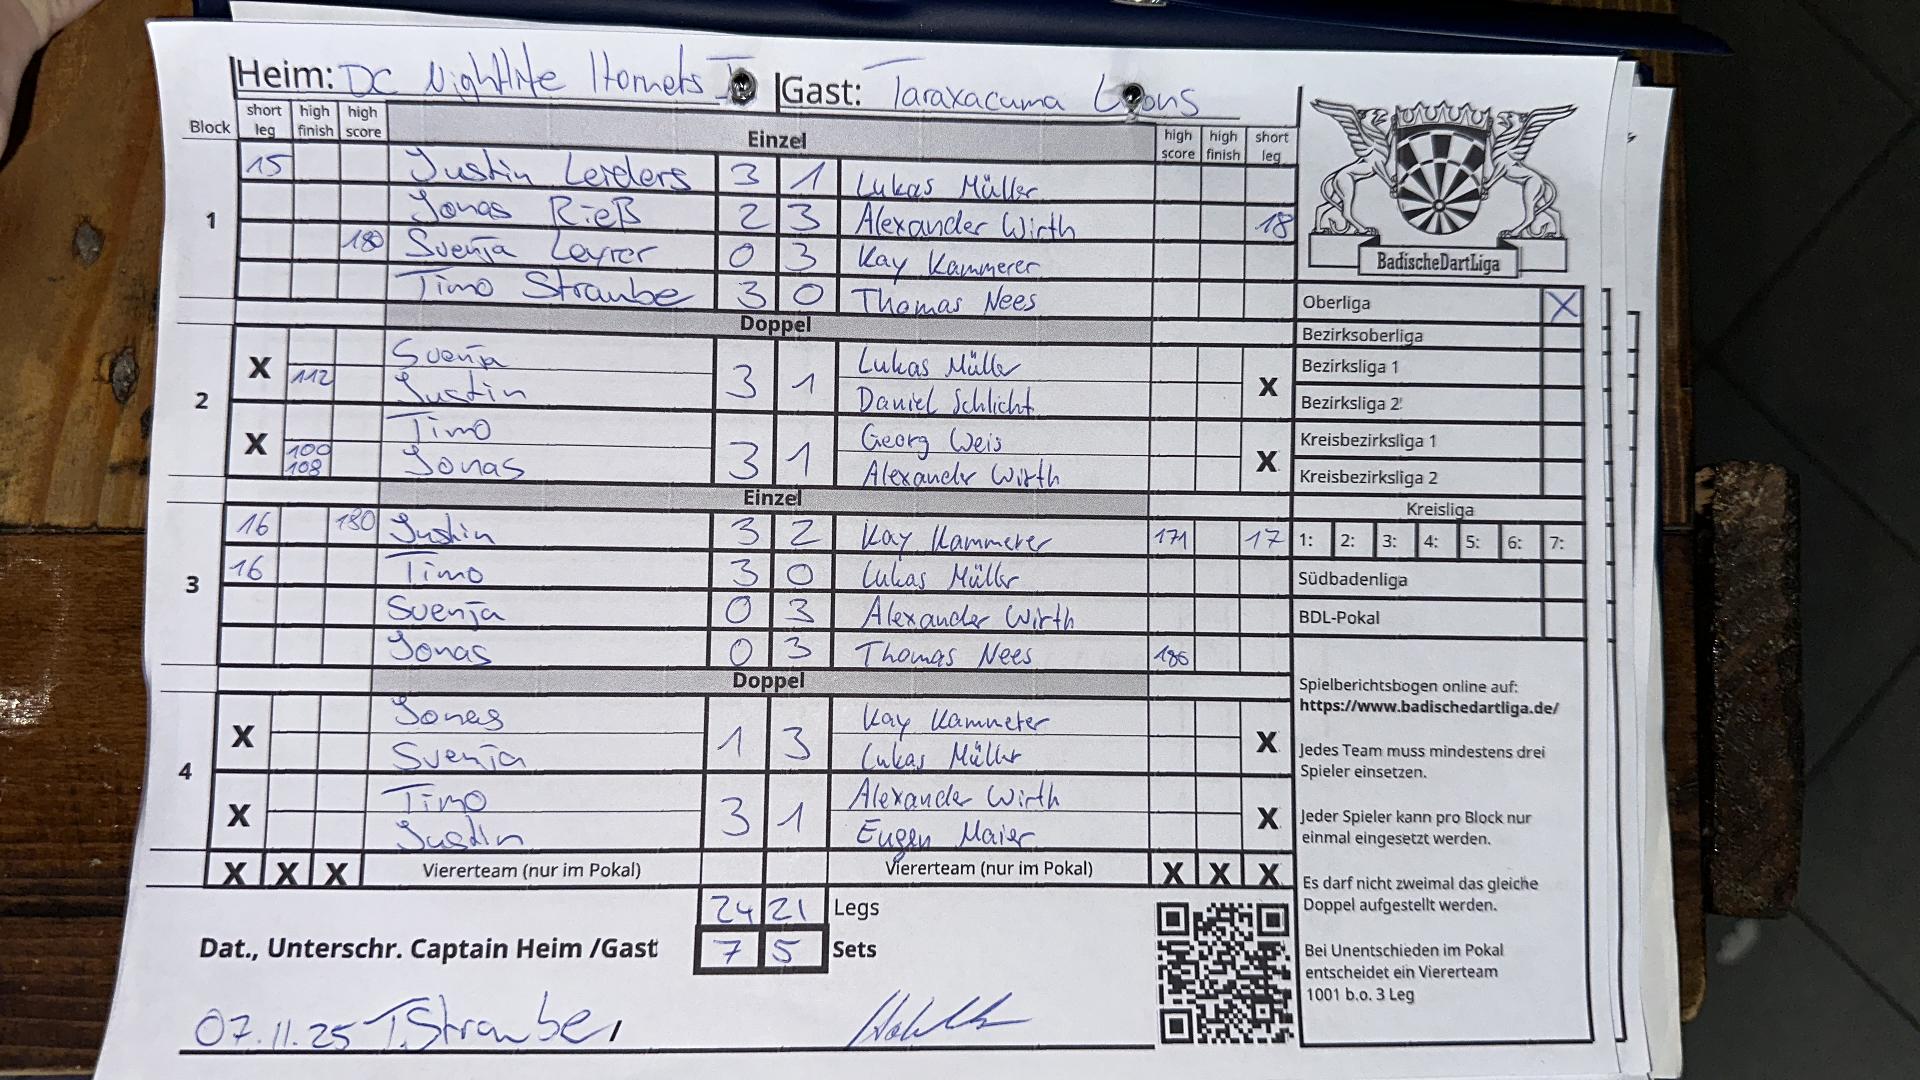 Heim: DC Nightlife Hornets I Gast: Taraxacuma Lions
Block short leg high finish high score Einzel high score high finish short leg
15 Justin Leiders 3 1 Lukas Müller
1 Jonas Rieß 2 3 Alexander Wirth 18
180 Svenja Leyrer 0 3 Kay Kammerer
Timo Straube 3 0 Thomas Nees
Doppel
2
X Svenja 3 1 Lukas Müller X
112 Justin Daniel Schlicht
X Timo 3 1 Georg Weis X
100 108 Jonas Alexander Wirth
Einzel
3
16 180 Justin 3 2 Kay Kammerer 171 17
16 Timo 3 0 Lukas Müller
Svenja 0 3 Alexander Wirth
Jonas 0 3 Thomas Nees 186
Doppel
4
X Jonas 1 3 Kay Kammerer X
Svenja Lukas Müller
X Timo 3 1 Alexander Wirth X
Justin Eugen Maier
X X X Viererteam (nur im Pokal) Viererteam (nur im Pokal) X X X
24 21 Legs
Dat., Unterschr. Captain Heim /Gast 7 5 Sets
07.11.25 T.Straube
BadischeDartLiga
Oberliga X
Bezirksoberliga
Bezirksliga 1
Bezirksliga 2
Kreisbezirksliga 1
Kreisbezirksliga 2
Kreisliga
1: 2: 3: 4: 5: 6: 7:
Südbadenliga
BDL-Pokal
Spielberichtsbogen online auf:
https://www.badischedartliga.de/
Jedes Team muss mindestens drei
Spieler einsetzen.
Jeder Spieler kann pro Block nur
einmal eingesetzt werden.
Es darf nicht zweimal das gleiche
Doppel aufgestellt werden.
Bei Unentschieden im Pokal
entscheidet ein Viererteam
1001 b.o. 3 Leg